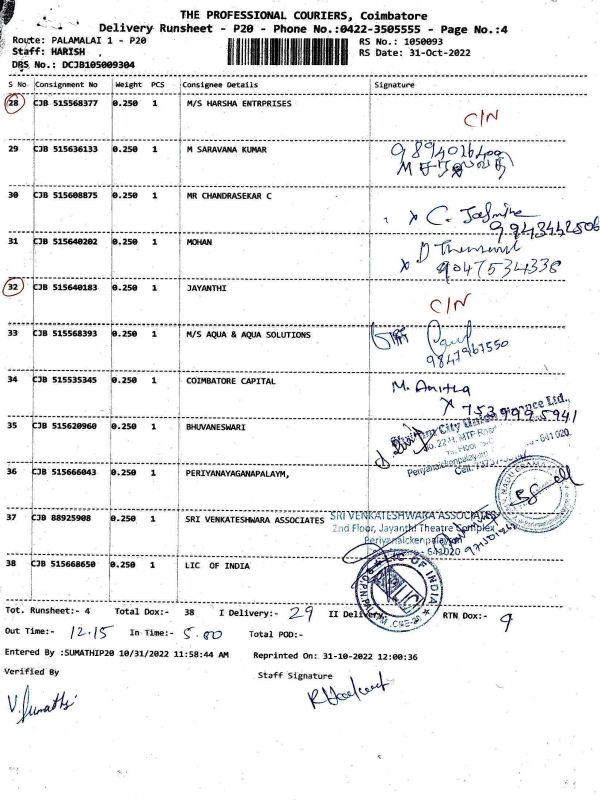 THE PROFESSIONAL COURIERS, Coimbatore
Delivery Runsheet - P20 - Phone No.:0422-3505555 - Page No.:4
Route: PALAMALAI 1 - P20 RS No.: 1050093
Staff: HARISH RS Date: 31-Oct-2022
DRS No.: DCJB105009304
S No Consignment No Weight PCS Consignee Details Signature
28 CJB 515568377 0.250 1 M/S HARSHA ENTRPRISES
C/N
29 CJB 515636133 0.250 1 M SARAVANA KUMAR
30 CJB 515608875 0.250 1 MR CHANDRASEKAR C
9943442506
31 CJB 515640202 0.250 1 MOHAN
9047534338
32 CJB 515640183 0.250 1 JAYANTHI
C/N
33 CJB 515568393 0.250 1 M/S AQUA & AQUA SOLUTIONS
9847967550
34 CJB 515535345 0.250 1 COIMBATORE CAPITAL M. Anitha
35 CJB 515620960 0.250 1 BHUVANESWARI
36 CJB 515666043 0.250 1 PERIYANAYAGANAPALAYM,
37 CJB 88925908 0.250 1 SRI VENKATESHWARA ASSOCIATES SRI VENKATESHWARA ASSOCIATES
2nd Floor, Jayanthi Theatre Complex
Periyanaickenpalayam
641020
38 CJB 515668650 0.250 1 LIC OF INDIA
LIC OF INDIA
Tot. Runsheet:- 4 Total Dox:- 38 I Delivery:- 29 II Delivery:- RTN Dox:- 9
Out Time:- 12.15 In Time:- 5.00 Total POD:-
Entered By :SUMATHIP20 10/31/2022 11:58:44 AM Reprinted On: 31-10-2022 12:00:36
Verified By Staff Signature
V. Sumathi